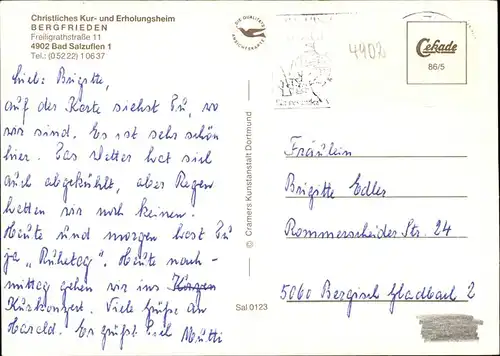 Christliches Kur- und Erholungsheim
BERGFRIEDEN
Freiligrathstraße 11
4902 Bad Salzuflen 1
Tel.: (0 52 22) 1 06 37
Lieb. Brigitte,
auf der Karte siehst Du, wo
wir sind. Es ist sehr schön
hier. Das Wetter hat sich
auch abgekühlt, aber Regen
hatten wir noch keinen.
Heute und morgen hast Du
ja "Ruhetag". Heute nach-
mittag gehen wir ins
Kurkonzert. Viele Grüße an
Harald. Es grüßt Dich Mutti
DIE QUALITÄTS
ANSICHTSKARTE
© Cramers Kunstanstalt Dortmund
Sal 0123
4902
Cekade
86/5
Fräulein
Brigitte Edler
Rommerscheider Str. 24
5060 Bergisch Gladbach 2